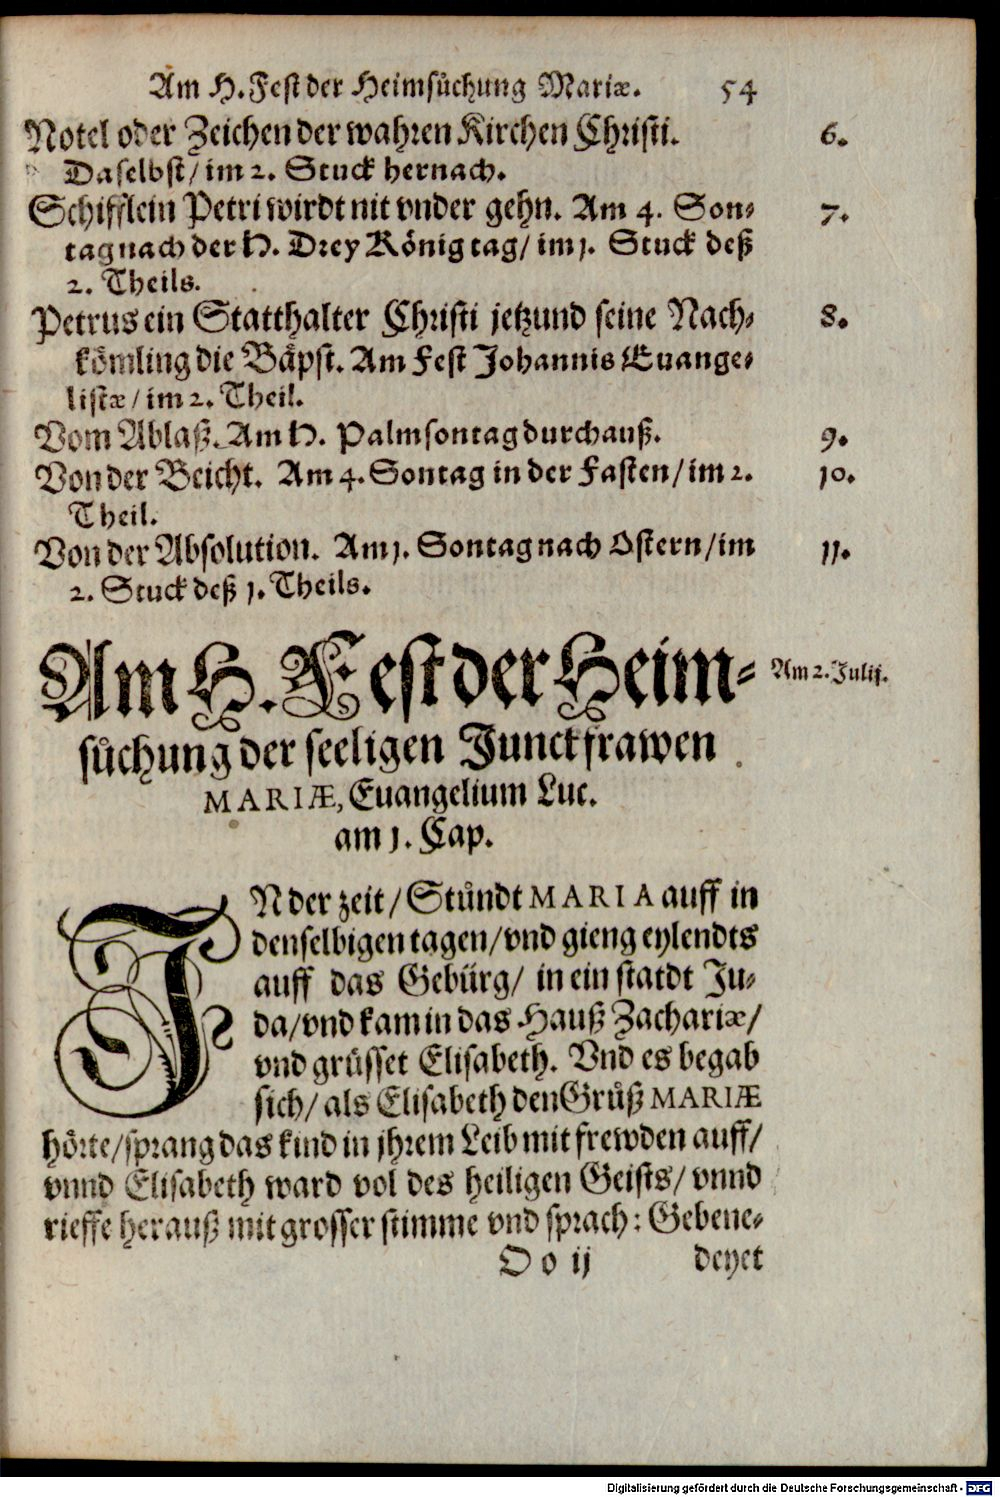 Am H. Fest der Heimsůchung Mariæ. 54
Notel oder Zeichen der wahren Kirchen Christi. 6.
Daselbst / im 2. Stuck hernach.
Schifflein Petri wirdt nit vnder gehn. Am 4. Son- 7.
tag nach der H. Drey König tag / im 1. Stuck deß
2. Theils.
Petrus ein Statthalter Christi jetzund seine Nach- 8.
kömling die Båpst. Am Fest Johannis Euange-
listæ / im 2. Theil.
Vom Ablaß. Am H. Palmsontag durchauß. 9.
Von der Beicht. Am 4. Sontag in der Fasten / im 2. 10.
Theil.
Von der Absolution. Am 1. Sontag nach Ostern / im 11.
2. Stuck deß 1. Theils.
Am H. Fest der Heim- Am 2. Julij.
sůchung der seeligen Junckfrawen
MARIÆ, Euangelium Luc.
am 1. Cap.
IN der zeit / Stůndt MARIA auff in
denselbigen tagen / vnd gieng eylendts
auff das Gebürg / in ein statdt Ju-
da / vnd kam in das Hauß Zachariæ /
vnd grüsset Elisabeth. Vnd es begab
sich / als Elisabeth den Grůß MARIÆ
hörte / sprang das kind in jhrem Leib mit frewden auff /
vnnd Elisabeth ward vol des heiligen Geists / vnnd
rieffe herauß mit grosser stimme vnd sprach: Gebene-
O o ij deyet
Digitalisierung gefördert durch die Deutsche Forschungsgemeinschaft - DFG